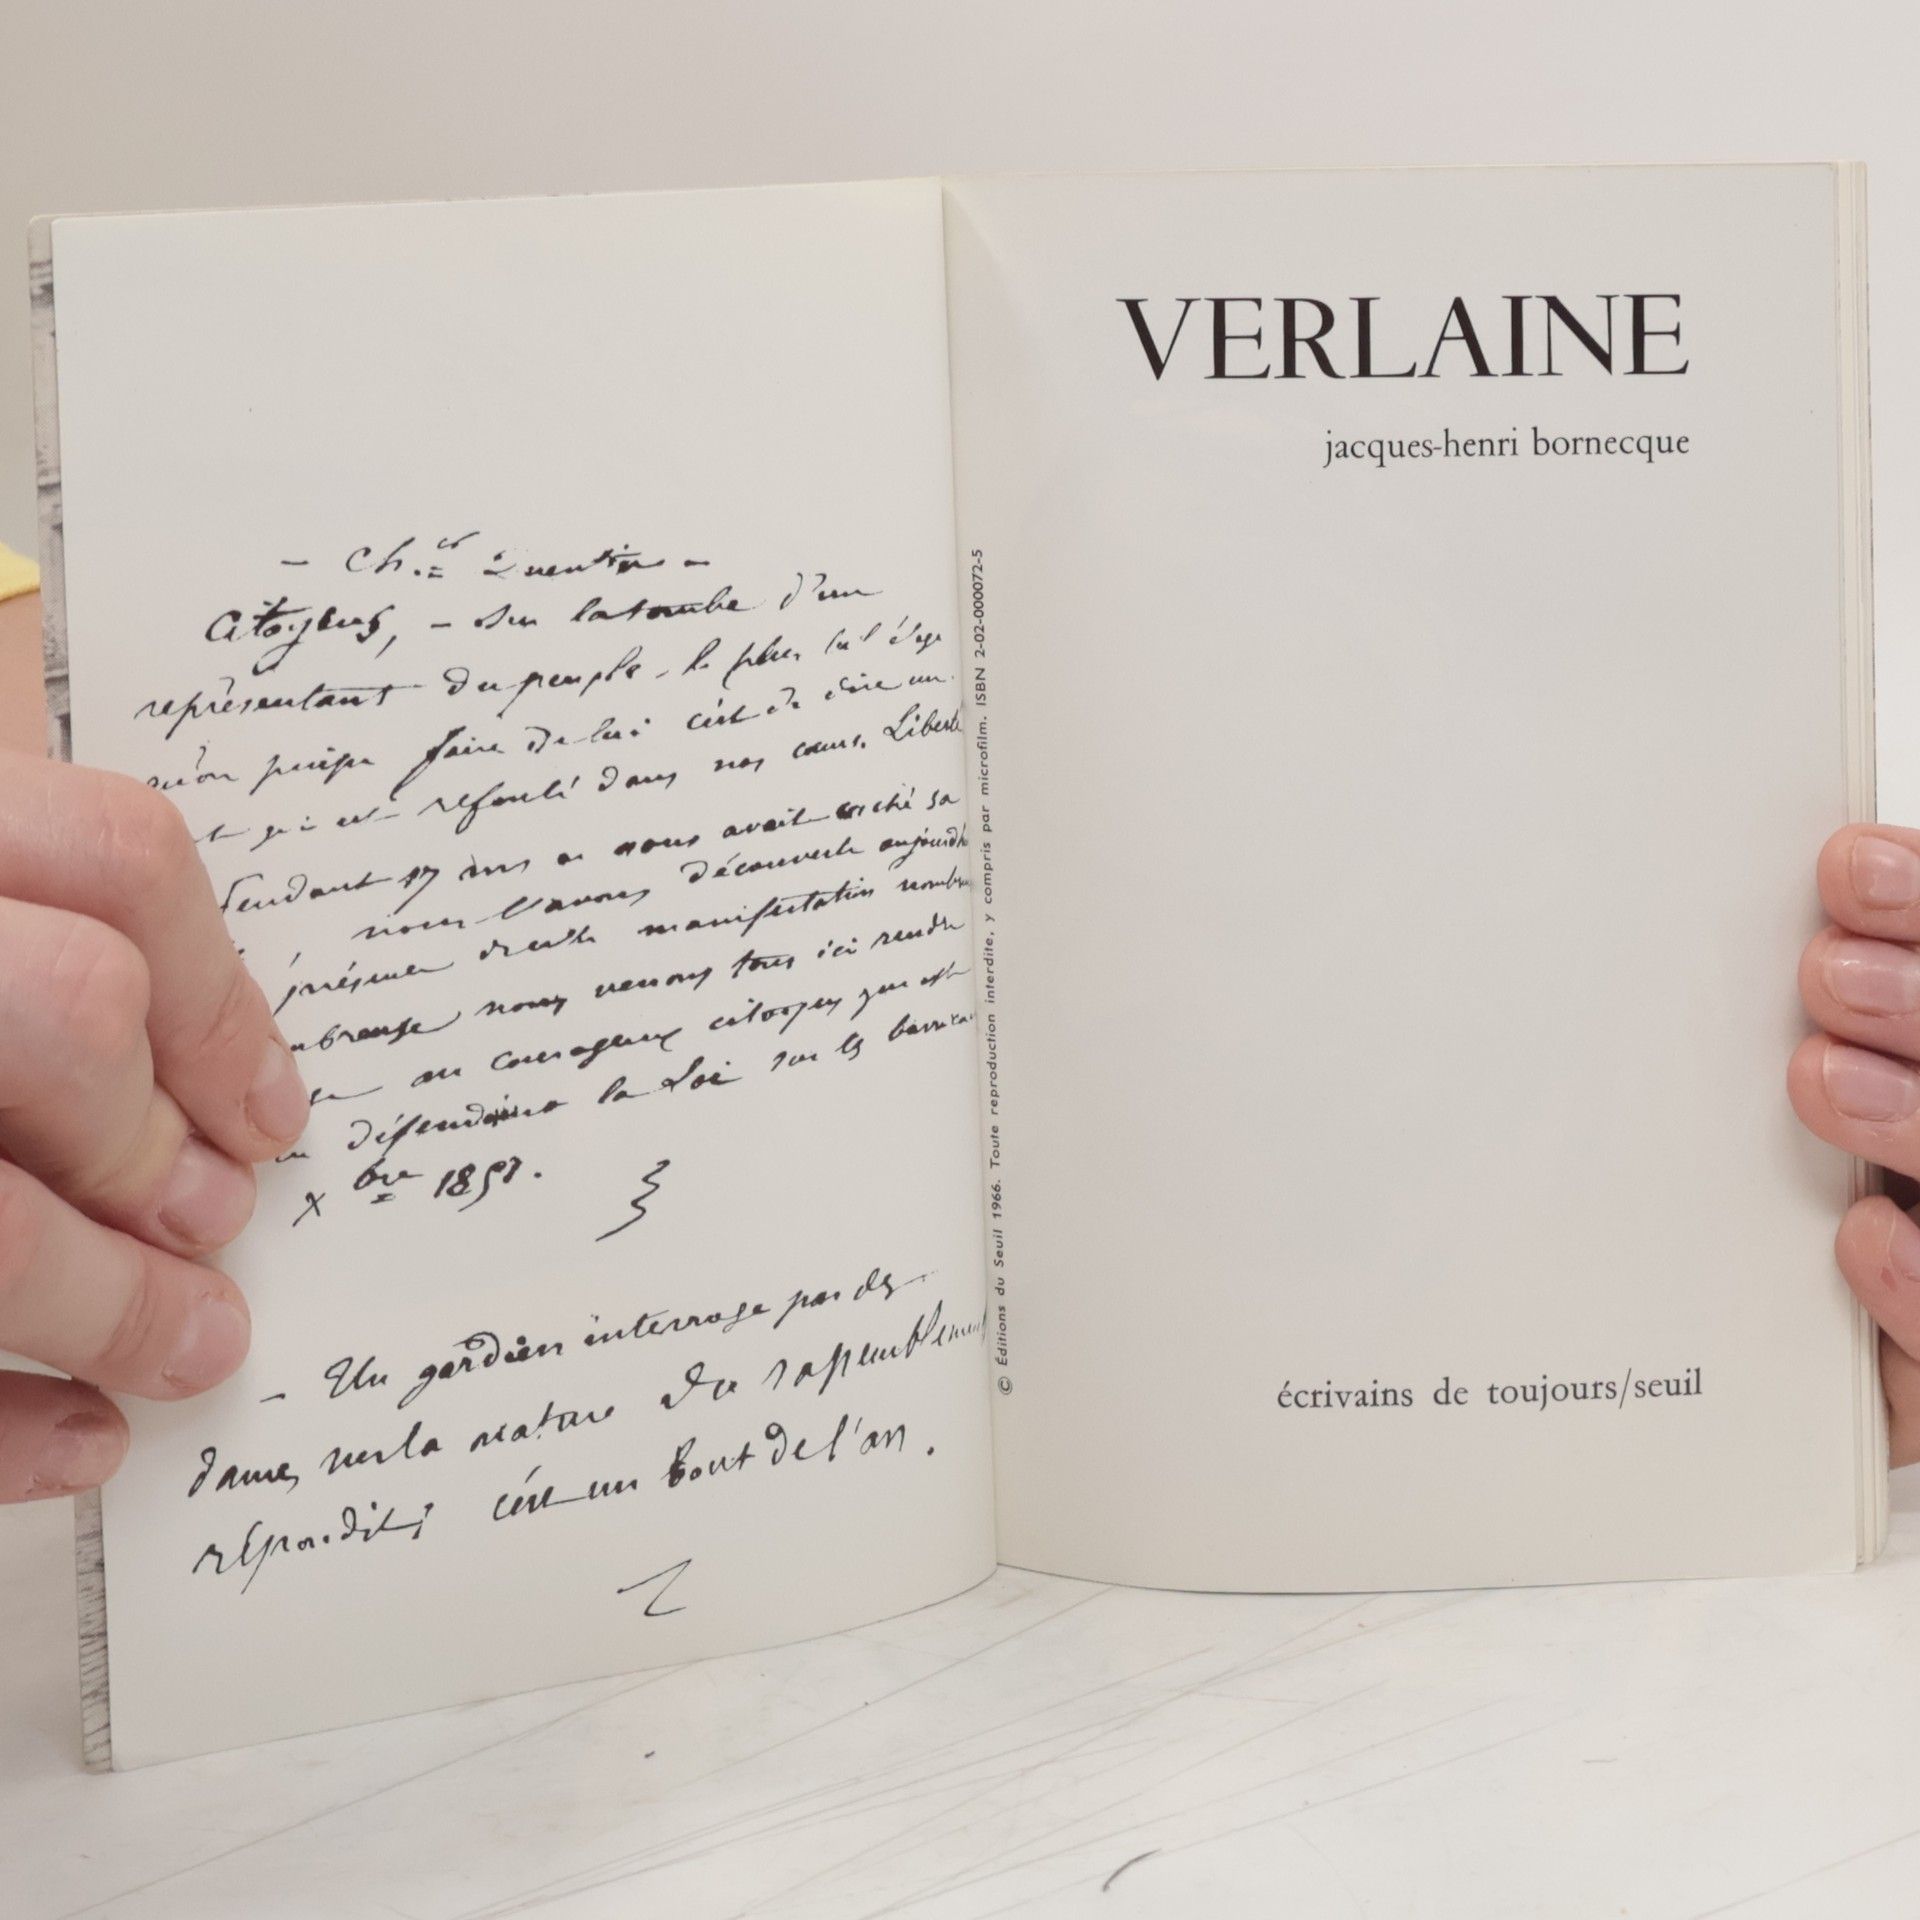 - Ch.es Quentin -
Citoyens, - Sur la tombe d'un
représentant du peuple - le plus bel éloge
qu'on puisse faire de lui c'est de dire un
qui est refoulé dans nos cœurs. Liberté
Pendant 17 ans on nous avait caché sa
nous l'avons découverte aujourd'h
présence de cette manifestation nombr
nombreuse nous venons tous ici rendre
au courageux citoyen qui est
défendant la Loi sur les barrica
Xbre 1851.
- Un gardien interrogé par des
dames sur la nature du rassemblement
répondit; c'est un bout de l'an.
© Éditions du Seuil 1966. Toute reproduction interdite, y compris par microfilm. ISBN 2-02-000072-5
VERLAINE
jacques-henri bornecque
écrivains de toujours/seuil